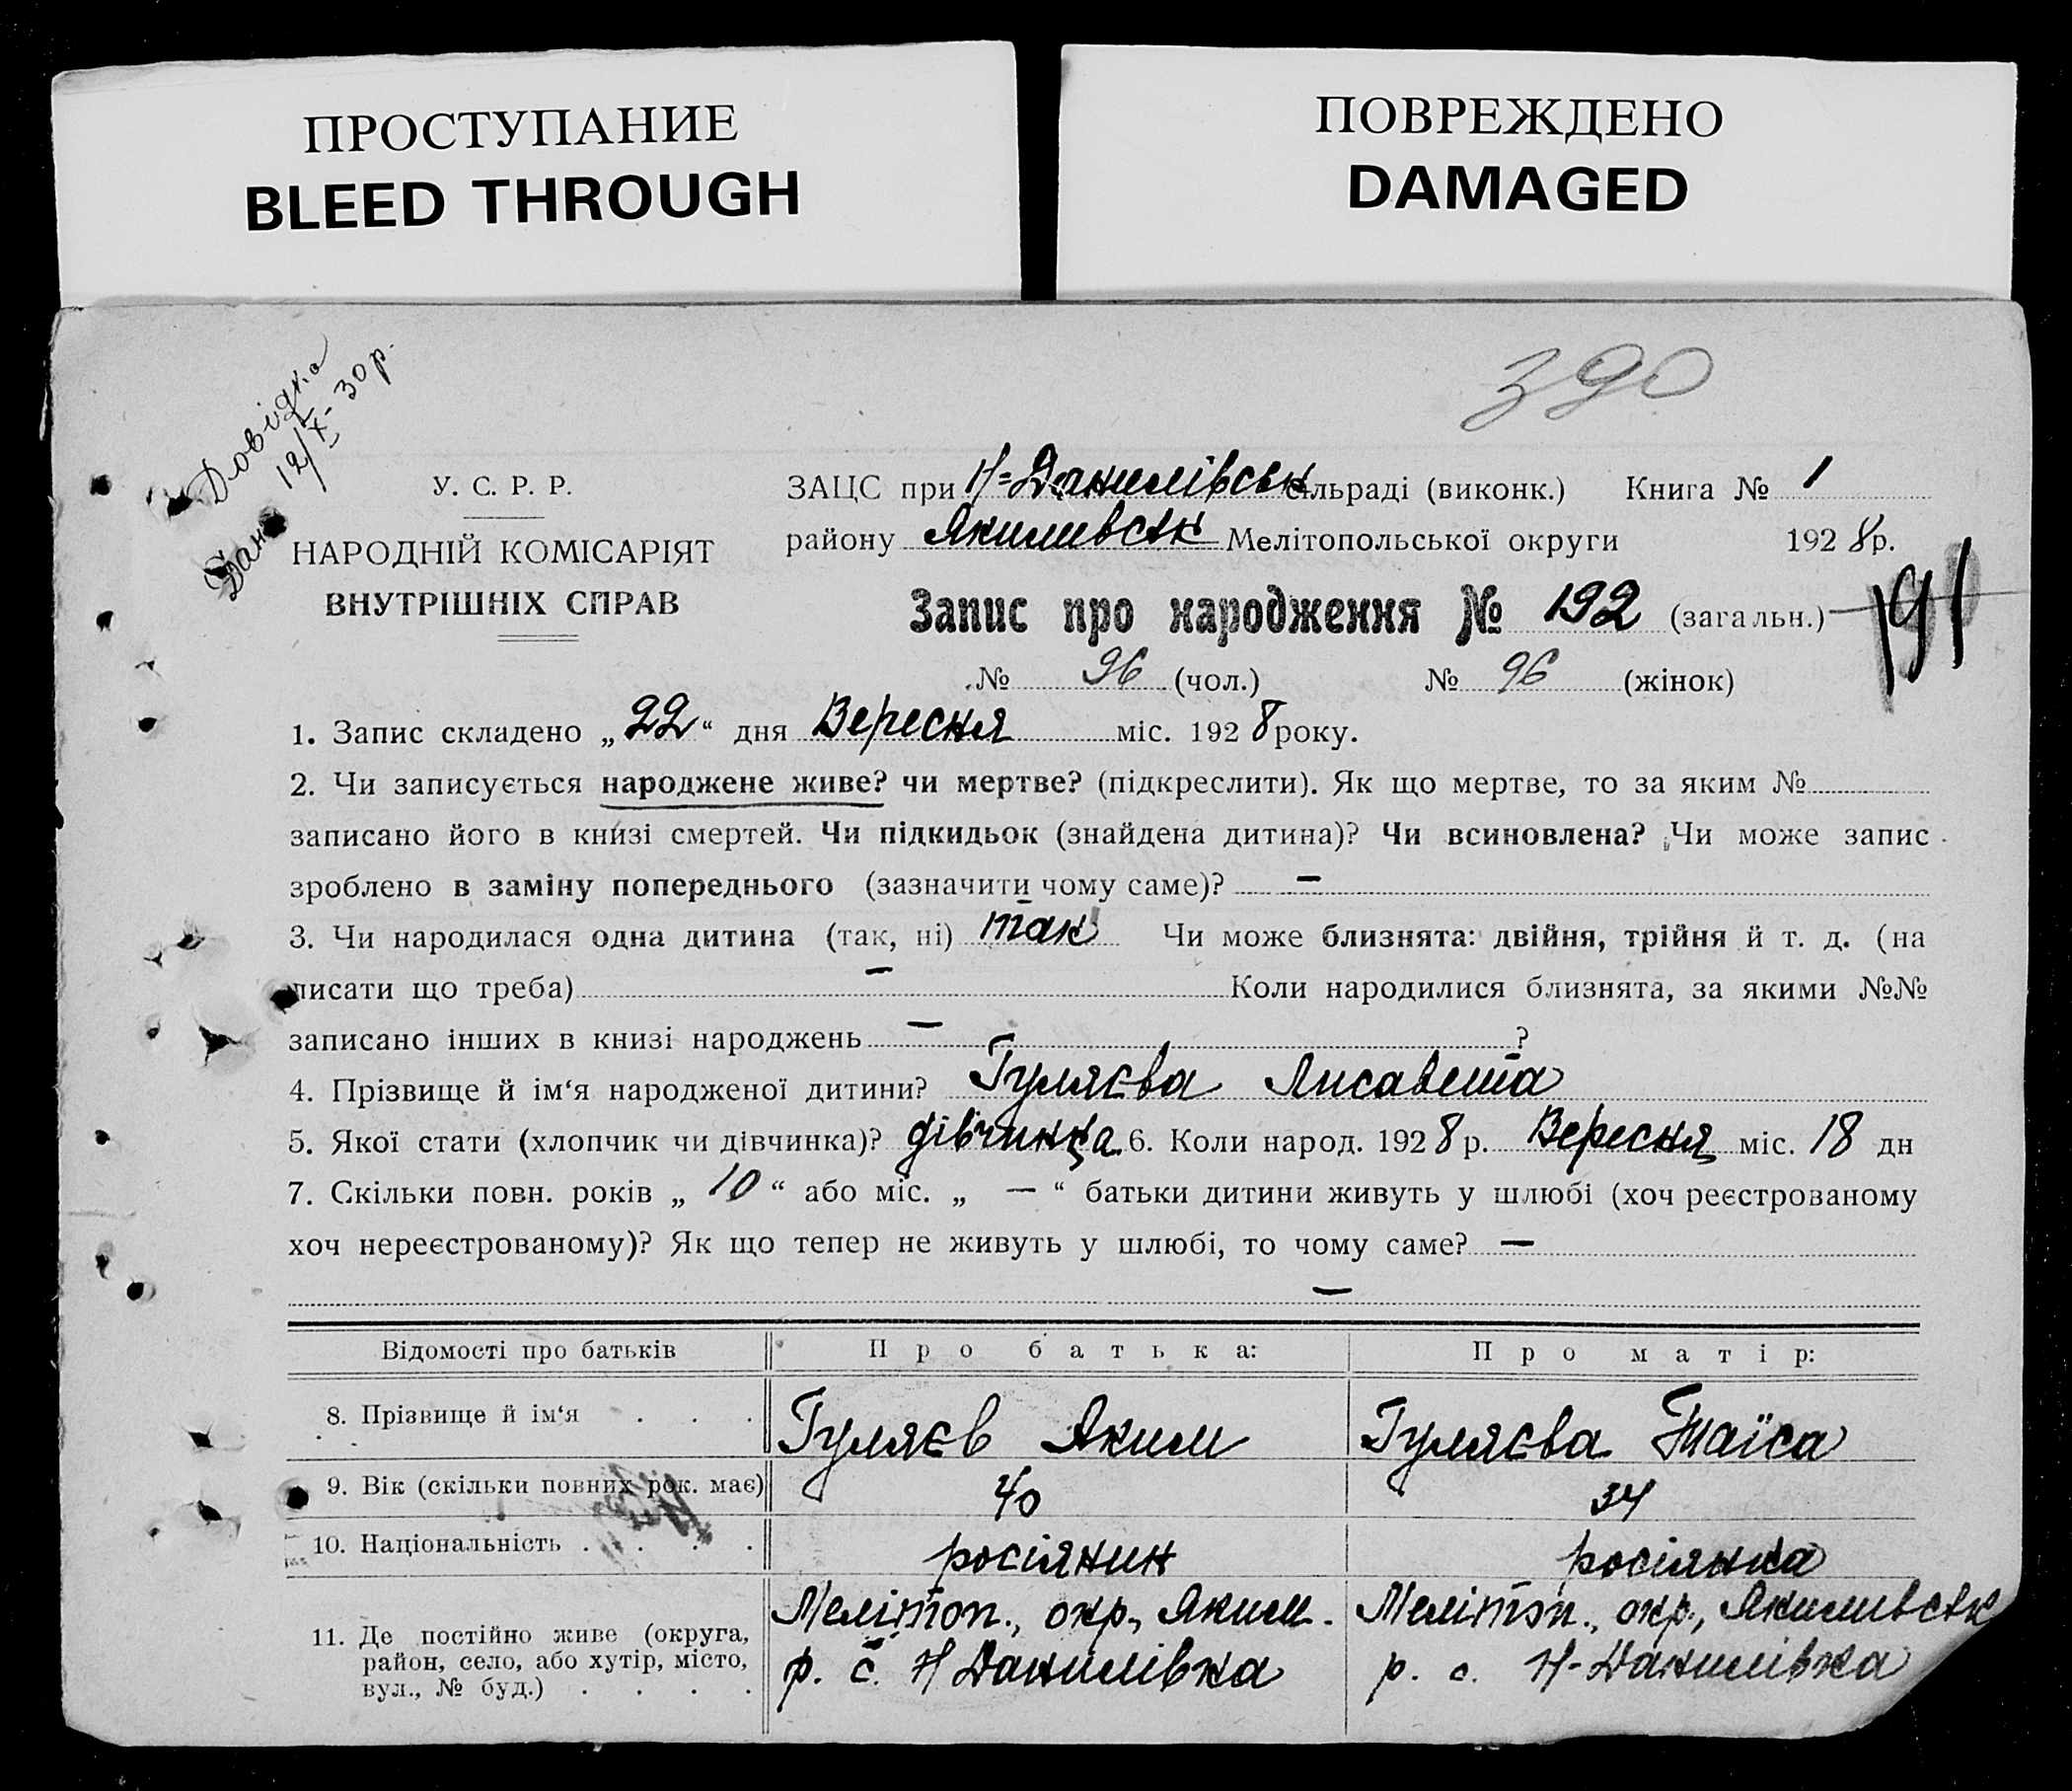 ПРОСТУПАНИЕ
BLEED THROUGH
ПОВРЕЖДЕНО
DAMAGED
390
Дана Довідка
12/X-30р.
У. С. Р. Р.
НАРОДНІЙ КОМІСАРІЯТ
ВНУТРІШНІХ СПРАВ
ЗАЦС при Н-Данилівськ сільраді (виконк.) Книга № 1
району Якимивськ Мелітопольської округи 1928 р.
Запис про народження № 192 (загальн.) 191
№ 96 (чол.) № 96 (жінок)
1. Запис складено „22“ дня Вересня міс. 1928 року.
2. Чи записується народжене живе? чи мертве? (підкреслити). Як що мертве, то за яким №
записано його в книзі смертей. Чи підкидьок (знайдена дитина)? Чи всиновлена? Чи може запис
зроблено в заміну попереднього (зазначити чому саме)? —
3. Чи народилася одна дитина (так, ні) так Чи може близнята: двійня, трійня й т. д. (на
писати що треба) — Коли народилися близнята, за якими №№
записано інших в книзі народжень — ?
4. Прізвище й ім‘я народженої дитини? Гуляєва Лисавета
5. Якої стати (хлопчик чи дівчинка)? дівчинка 6. Коли народ. 1928 р. Вересня міс. 18 дн
7. Скільки повн. років „ 10 “ або міс. „ — “ батьки дитини живуть у шлюбі (хоч реєстрованому
хоч нереєстрованому)? Як що тепер не живуть у шлюбі, то чому саме? —
—
Відомості про батьків Про батька: Про матір:
8. Прізвище й ім‘я . . . Гуляєв Яким Гуляєва Таїса
9. Вік (скільки повних рок. має) 40 34
10. Національність . . . . росіянин росіянка
11. Де постійно живе (округа, район, село, або хутір, місто, вул., № буд.) . . . .
Мелітоп., окр., Яким.
р. с. Н Данилівка
Мелітоп., окр., Якимивськ
р. с. Н-Данилівка